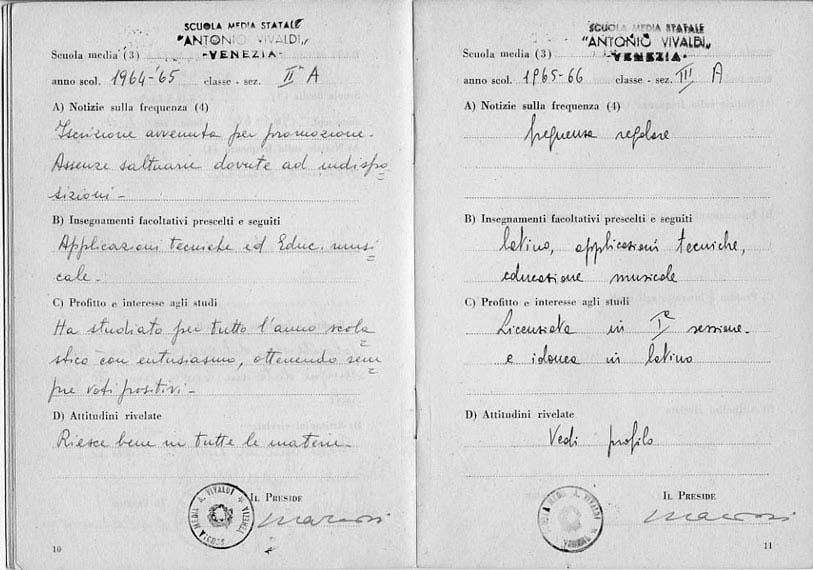 SCUOLA MEDIA STATALE
"ANTONIO VIVALDI"
Scuola media (3) - VENEZIA -
anno scol. 1964-'65 classe - sez. IIª A
A) Notizie sulla frequenza (4)
Iscrizione avvenuta per promozione.
Assenze saltuarie dovute ad indispo
sizioni -
B) Insegnamenti facoltativi prescelti e seguiti
Applicazioni tecniche ed Educ. musi=
cale -
C) Profitto e interesse agli studi
Ha studiato per tutto l'anno scola=
stico con entusiasmo, ottenendo sem=
pre voti positivi -
D) Attitudini rivelate
Riesce bene in tutte le materie -
SCUOLA MEDIA A. VIVALDI * VENEZIA *
IL PRESIDE
10
SCUOLA MEDIA STATALE
"ANTONIO VIVALDI"
Scuola media (3) - VENEZIA -
anno scol. 1965-66 classe - sez. III A
A) Notizie sulla frequenza (4)
frequenza regolare
B) Insegnamenti facoltativi prescelti e seguiti
latino, applicazioni tecniche,
educazione musicale
C) Profitto e interesse agli studi
Licenziata in Iª sessione -
e idonea in latino
D) Attitudini rivelate
Vedi profilo
SCUOLA MEDIA A. VIVALDI * VENEZIA *
IL PRESIDE
11